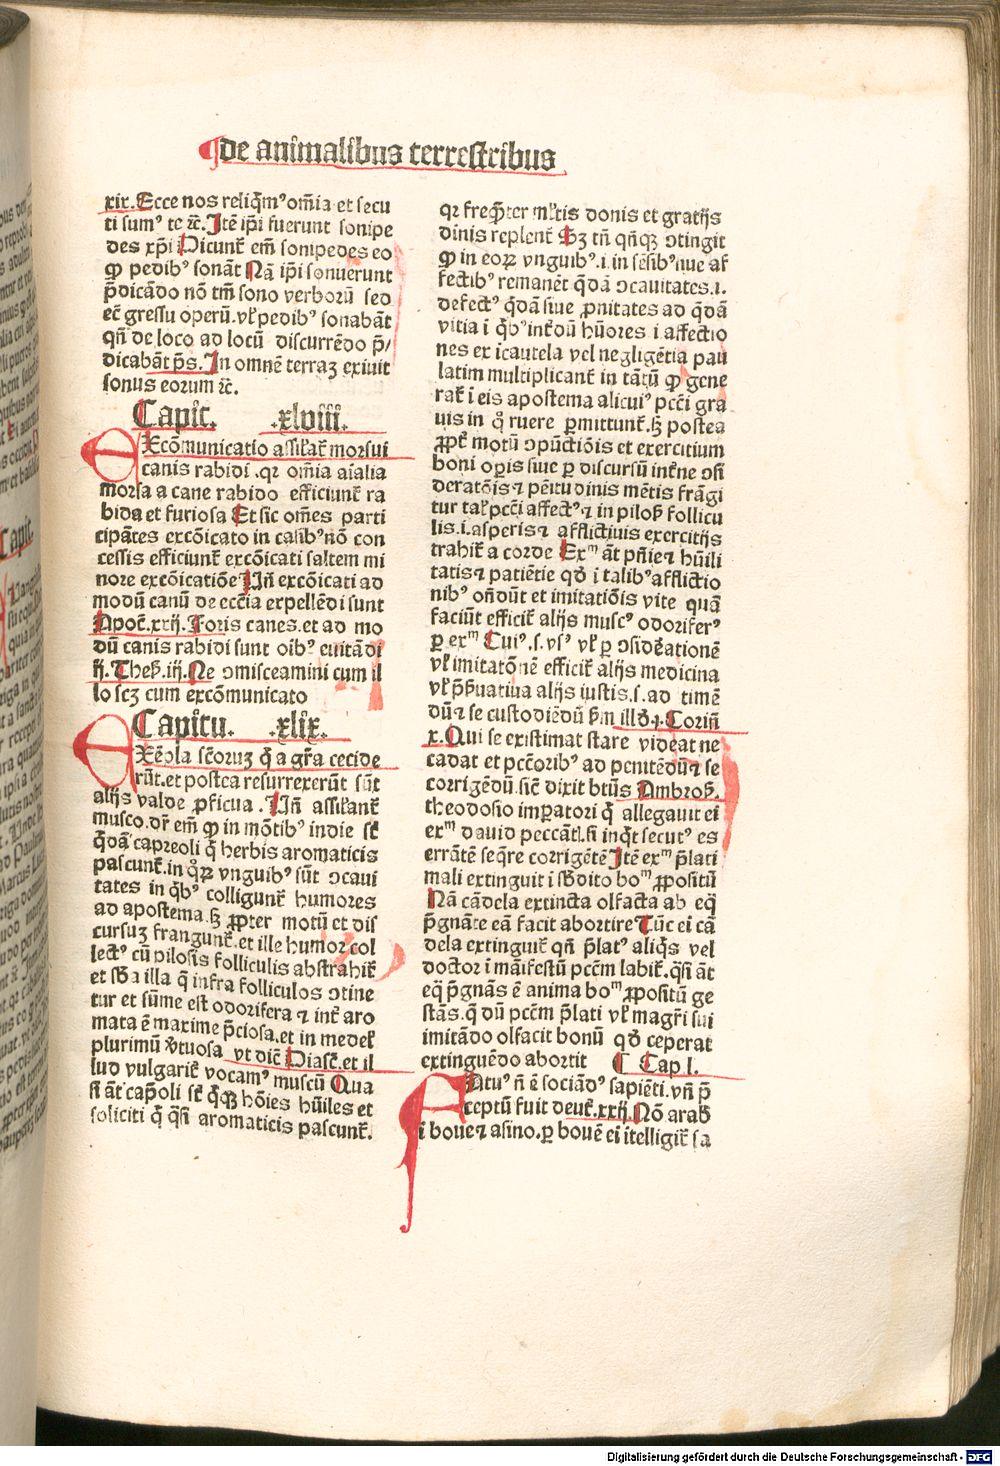 de animalibus terrestribus
xix. Ecce nos reliq̄m⁹ om̄ia et secu
ti sum⁹ te ⁊c̄. Itē ip̄i fuerunt sonipe
des xp̄i Dicunt̄ em̄ sonipedes eo
ꝙ pedib⁹ sonāt Nā ip̄i sonuerunt
p̄dicādo nō tm̄ sono verborū sed
ec̄ gressu operū. vl̄ pedib⁹ sonabāt
qn̄ de loco ad locū discurrēdo p̄/
dicabāt p̄s. In omnē terraꝫ exiuit
sonus eorum ⁊c̄.
Capit. .xlviii.
EXcōmunicatio assil̄at̄ morsui
canis rabidi .qꝛ om̄ia aīalia
morsa a cane rabido efficiunt̄ ra
bida et furiosa Et sic om̄es parti
cipātes excōicato in casib⁹ nō con
cessis efficiunt̄ excōicati saltem mi
nore excōicatiōe Iīn excōicati ad
modū canū de ecc̄ia expellēdi sunt
Apoc̄. xxij. Foris canes. et ad mo
dū canis rabidi sunt oib⁹ euitādi
ij. Thes̄. iij. Ne ɔmisceamini cum il
lo scꝫ cum excōmunicato
Capitu. .xlix.
EXēpla sc̄oruꝫ q̄ a gr̄a cecide
rūt. et postea resurrexerūt sūt
alijs valde ꝓficua . Iīn assil̄ant̄
musco. dr̄ em̄ ꝙ in mōtib⁹ indie st̄
q̄dā capreoli q̄ herbis aromaticis
pascunt̄. in q̄ꝝ vnguib⁹ sūt ɔcaui
tates in q̄b⁹ colligunt̄ humores
ad apostema. sꝫ ꝓpter motū et dis
cursuꝫ frangunt̄. et ille humor col
lect⁹ cū pilosis folliculis abstrahit̄
et sb̄a illa q̄ infra folliculos ɔtine
tur et sūme est odorifera ⁊ int̄ aro
mata ē maxime p̄ciosa. et in medel̄
plurimū v̄tuosa vt dic̄ Diasc̄. et il
lud vulgarit̄ vocam⁹ muscū Qua
si āt cap̄oli st̄ q̄qꝫ hōies hūiles et
soliciti q̄ q̄si aromaticis pascunt̄.
qꝛ freq̄ter ml̄tis donis et gratijs
diuinis replent̄ Sꝫ tn̄ qn̄qꝫ ɔtingit
ꝙ in eoꝝ vnguib⁹ .i. in sēsib⁹ siue af
fectib⁹ remanēt q̄dā ɔcauitates .i.
defect⁹ q̄dā siue ꝓnitates ad q̄dā
vitia ī q̄b⁹ int̄dū hūores .i. affectio
nes ex īcautela vel negligētia pau
latim multiplicant̄ in tātū ꝙ gene
rat̄ ī eis apostema alicui⁹ pcc̄i gra
uis in q̄ ruere ꝑmittunt̄. sꝫ postea
ꝓpt̄ motū ɔpūctiōis et exercitium
boni oꝑis siue ꝑ discursū int̄ne ɔsi
deratōis ⁊ pēitudinis mētis frāgi
tur tal̄ pcc̄i affect⁹ ⁊ in pilos̄ follicu
lis .i. asperis ⁊ afflictiuis exercitijs
trahit̄ a corde Exᵐ āt pn̄ie ⁊ hūili
tatis ⁊ patiētie qd̄ ī talib⁹ afflictio
nib⁹ on̄dūt et imitatiōis vite quā
faciūt efficit̄ alijs musc⁹ odorifer⁹
ꝑ exᵐ Cui⁹ .s. vs⁹ vl̄ ꝑ ɔsid̄ationē
vl̄ imitatōnē efficit̄ alijs medicina
vl̄ p̄s̄uatiua alijs iustis .s. ad timē
dū ⁊ se custodiēdū s̄m illd̄ .j. Corin̄
x. Qui se existimat stare videat ne
cadat et pcc̄orib⁹ ad penitēdū ⁊ se
corrigēdū. sic̄ dixit btūs Ambros̄.
theodosio imꝑatori q̄ allegauit ei
exᵐ dauid peccāt̄. si inq̄t secut⁹ es
errātē seq̄re corrigētē Itē exᵐ p̄lati
mali extinguit ī sb̄dito boᵐ ꝓpositū
Nā cādela extincta olfacta ab eq̄
p̄gnāte eā facit abortire Tūc ei cā
dela extinguit̄ qn̄ p̄lat⁹ aliq̄s vel
doctor ī māifestū pcc̄m labit̄. q̄si āt
eq̄ p̄gnās ē anima boᵐ ꝓpositū ge
stās. q̄ dū pcc̄m p̄lati vl̄ magr̄i sui
imitādo olfacit bonū qd̄ ceperat
extinguēdo abortit ¶ Cap l.
FAtu⁹ n̄ ē sociād⁹ sapiēti. vn̄ p̄
ceptū fuit deut̄. xxij. Nō arab̄
ī boue ⁊ asino. ꝑ bouē ei ītelligit̄ sa
Digitalisierung gefördert durch die Deutsche Forschungsgemeinschaft - DFG